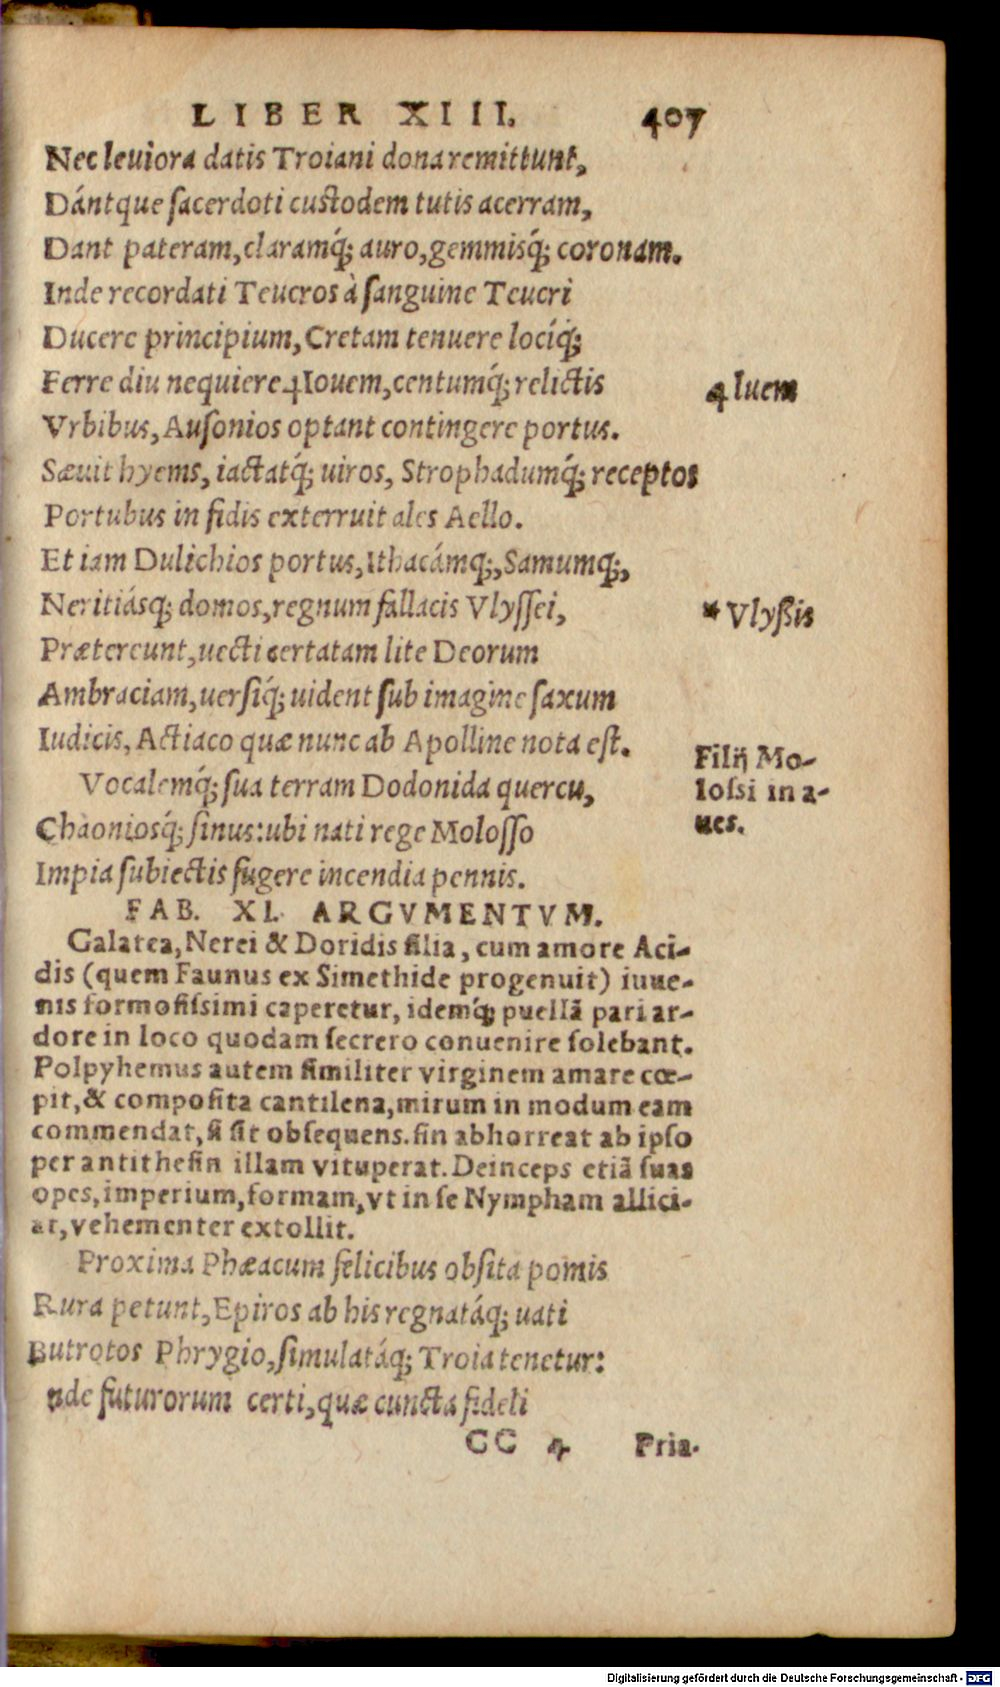 LIBER XIII. 407
Nec leuiora datis Troiani dona remittunt,
Dántque ſacerdoti cuſtodem tutis acerram,
Dant pateram, claramq́; auro, gemmisq́; coronam.
Inde recordati Teucros à ſanguine Teucri
Ducere principium, Cretam tenuere locíq́;
Ferre diu nequiere ꝗ Iouem, centumq́; relictis
ꝗ luem
Vrbibus, Auſonios optant contingere portus.
Sæuit hyems, iactatq́; uiros, Strophadumq́; receptos
Portubus in fidis exterruit ales Aello.
Et iam Dulichios portus, Ithacámq;, Samumq;,
Neritiásq; domos, regnum fallacis Vlyſſei,
* Vlyßis
Prætereunt, uecti certatam lite Deorum
Ambraciam, uerſiq́; uident ſub imagine ſaxum
Iudicis, Actiaco quæ nunc ab Apolline nota eſt.
Vocalemq́; ſua terram Dodonida quercu,
Chàoniosq́; ſinus: ubi nati rege Moloſſo
Impia ſubiectis fugere incendia pennis.
Filij Mo-
loſsi in a-
ues.
FAB. XI. ARGVMENTVM.
Galatea, Nerei & Doridis filia, cum amore Aci-
dis (quem Faunus ex Simethide progenuit) iuue-
nis formoſiſsimi caperetur, idemq́; puellā pari ar-
dore in loco quodam ſecrero conuenire ſolebant.
Polpyhemus autem ſimiliter virginem amare cœ-
pit, & compoſita cantilena, mirum in modum eam
commendat, ſi ſit obſequens. ſin abhorreat ab ipſo
per antitheſin illam vituperat. Deinceps etiā ſuas
opes, imperium, formam, vt in ſe Nympham allici-
at, vehementer extollit.
Proxima Phæacum felicibus obſita pomis
Rura petunt, Epiros ab his regnatáq; uati
Butrotos Phrygio, ſimulatáq; Troia tenetur:
nde futurorum certi, quæ cuncta fideli
CC 4 Pria-
Digitalisierung gefördert durch die Deutsche Forschungsgemeinschaft - DFG